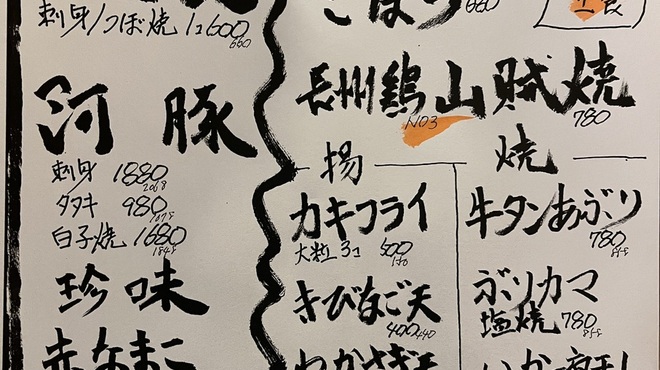 刺身/つぼ焼 1コ600
660
河豚
刺身 1880
2068
タタキ 980
1078
白子焼 1680
1848
珍味
赤なまこ
ごぼう
660
長州鶏山賊焼
NO3
780
揚
カキフライ
大粒3コ 500
550
きびなご天
400 440
わかさぎ天
焼
牛タンあぶり
780
858
ブリカマ
塩焼 780
858
いか一夜干し